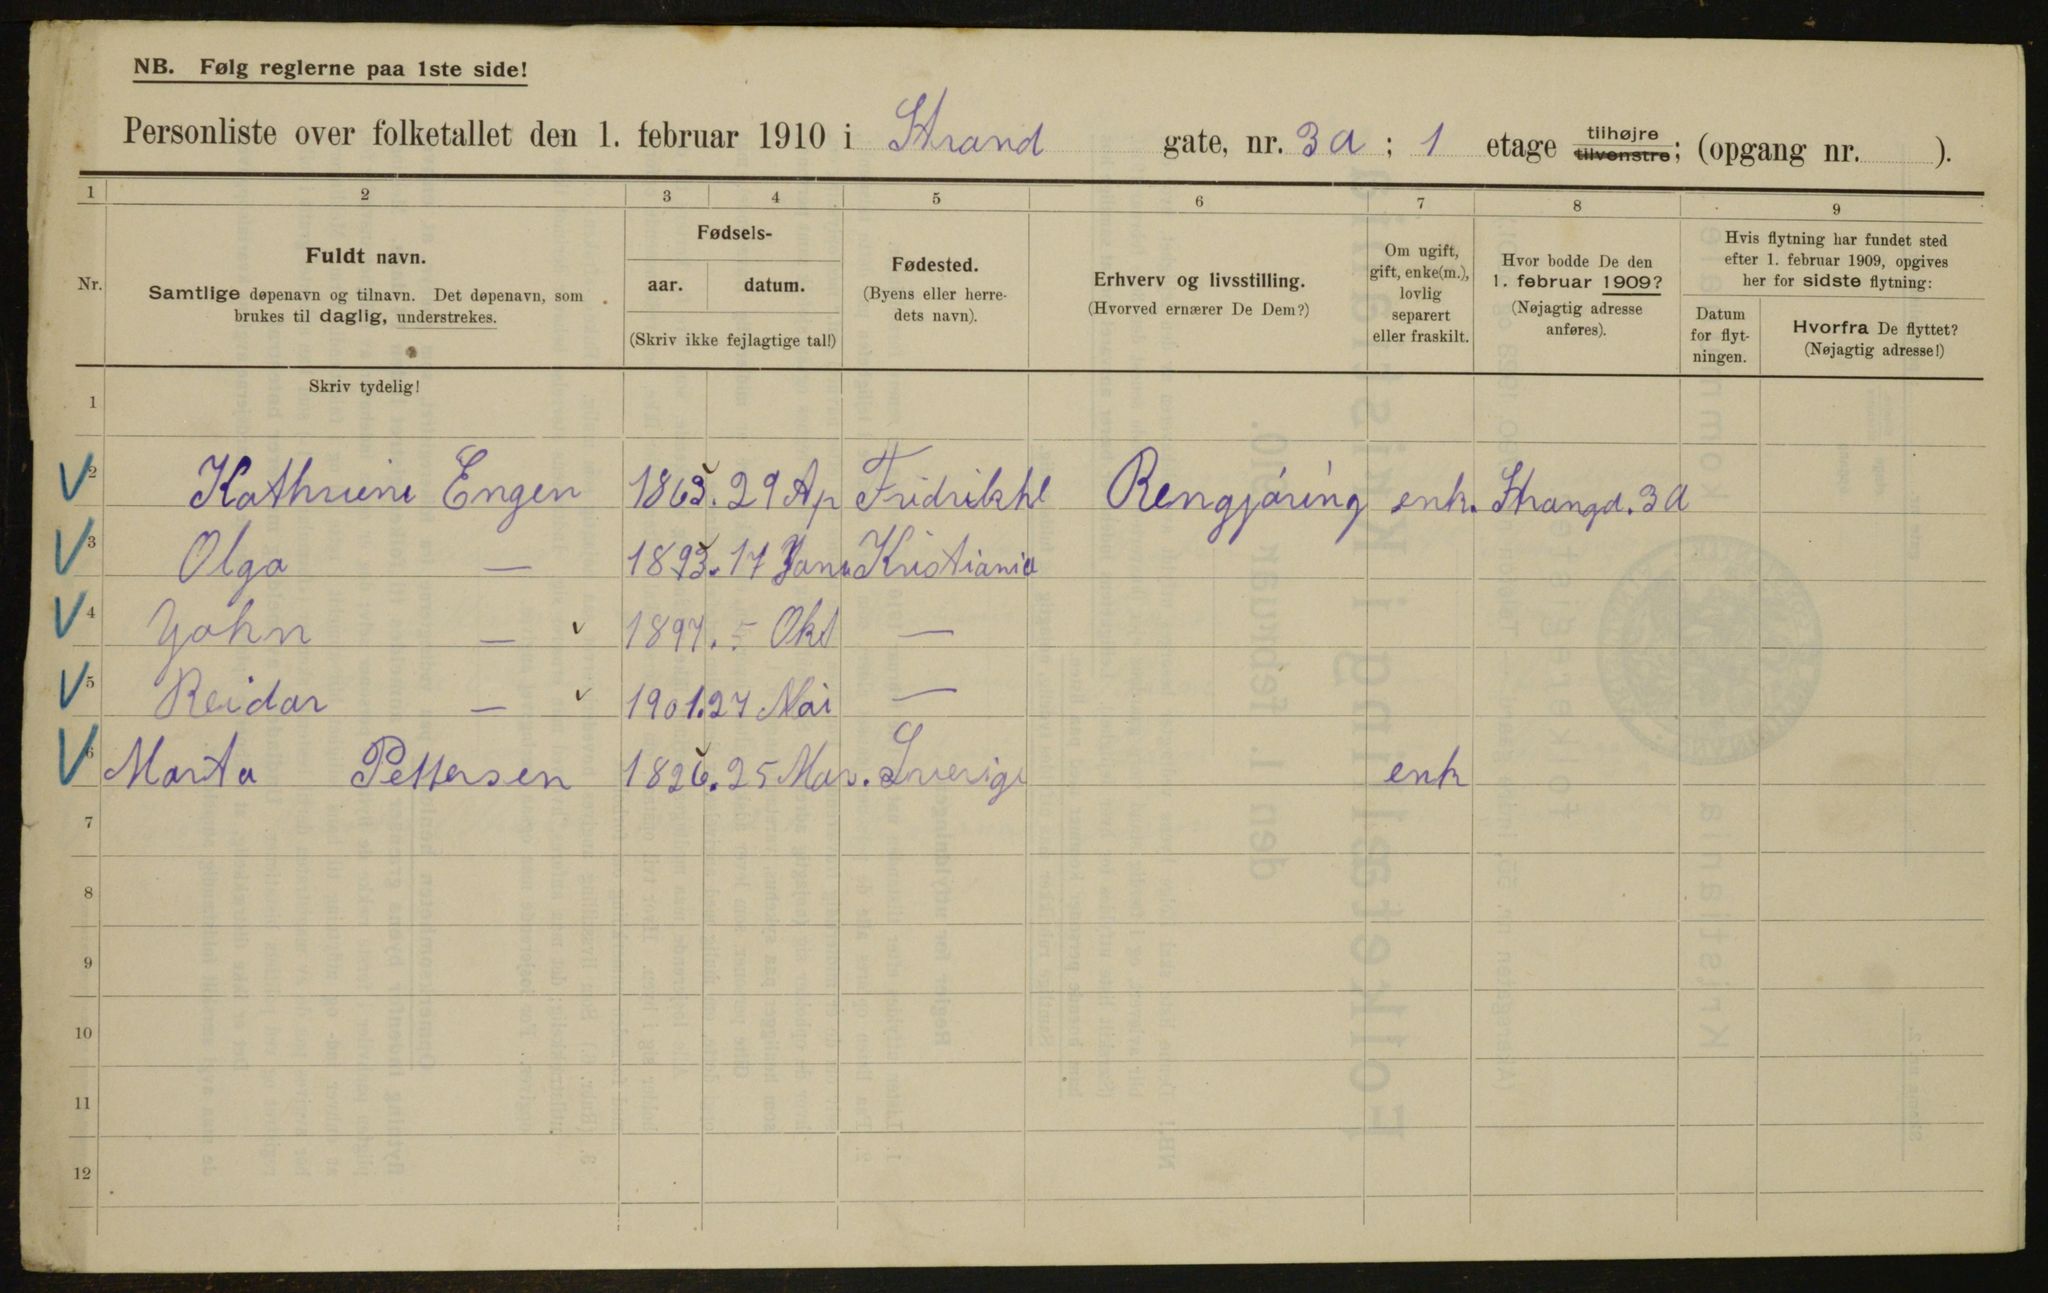 NB. Følg reglerne paa 1ste side!
Personliste over folketallet den 1. februar 1910 i Strand gate, nr. 3a ; 1 etage tilhøjre tilvenstre; (opgang nr. ).
1 2 3 4 5 6 7 8 9
Nr.
Fuldt navn.
Samtlige døpenavn og tilnavn. Det døpenavn, som
brukes til daglig, understrekes.
Fødsels-
aar. datum.
(Skriv ikke fejlagtige tal!)
Fødested.
(Byens eller herre-
dets navn).
Erhverv og livsstilling.
(Hvorved ernærer De Dem?)
Om ugift,
gift, enke(m.),
lovlig
separert
eller fraskilt.
Hvor bodde De den
1. februar 1909?
(Nøjagtig adresse
anføres).
Hvis flytning har fundet sted
efter 1. februar 1909, opgives
her for sidste flytning:
Datum
for flyt-
ningen.
Hvorfra De flyttet?
(Nøjagtig adresse!)
Skriv tydelig!
1
2 Kathrine Engen 1863. 29 Ap Fridrikhl Rengjøring enk. Strangd. 3a
3 Olga — 1893. 17 Janu Kristiania
4 John — 1897. 5 Okt —
5 Reidar — 1901. 27 Mai —
6 Marta Pettersen 1826. 25 Mar. Sverige enk
7
8
9
10
11
12